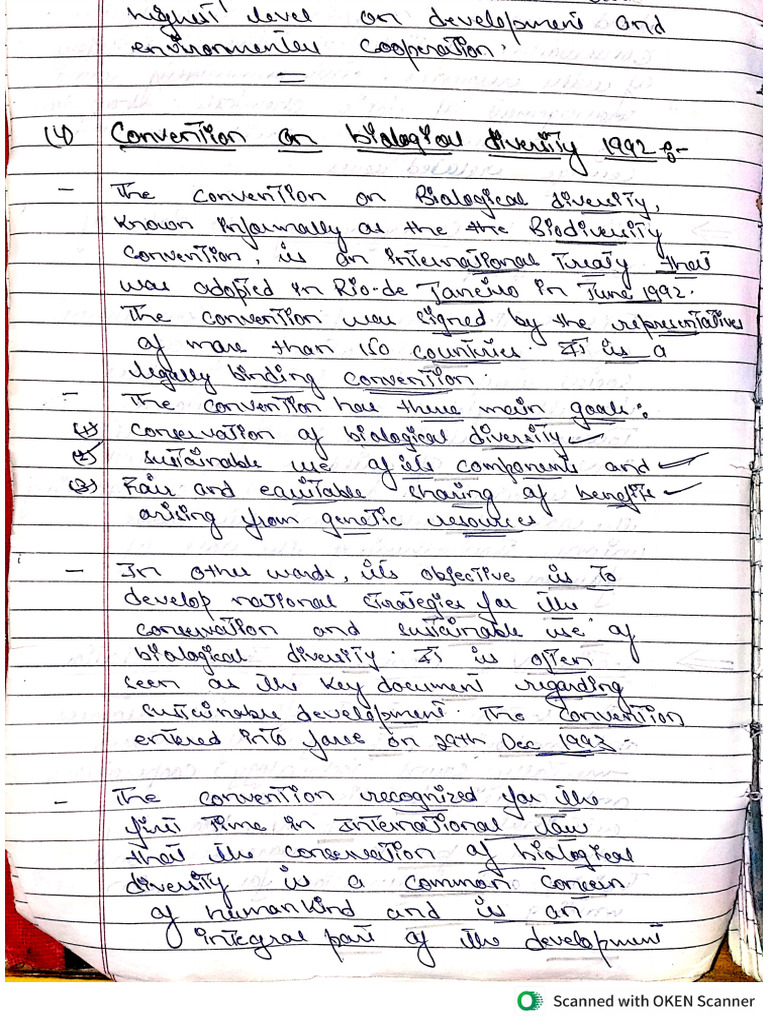 highest level on development and
environmental cooperation.
(4) Convention on biological diversity 1992 :-
- The convention on Biological diversity,
known informally as the the Biodiversity
convention, is an international Treaty that
was adopted in Rio-de Janeiro in June 1992.
The convention was signed by the representatives
of more than 150 countries. It is a
legally binding convention.
- The convention has three main goals:
(1) conservation of biological diversity
(2) sustainable use of its components and
(3) Fair and equitable sharing of benefits
arising from genetic resources
- In other words, its objective is to
develop national strategies for the
conservation and sustainable use of
biological diversity. It is often
seen as the key document regarding
sustainable development. The convention
entered into force on 29th Dec 1993.
- The convention recognized for the
first time in International Law
that the conservation of biological
diversity is a common concern
of humankind and is an
integral part of the development
Scanned with OKEN Scanner